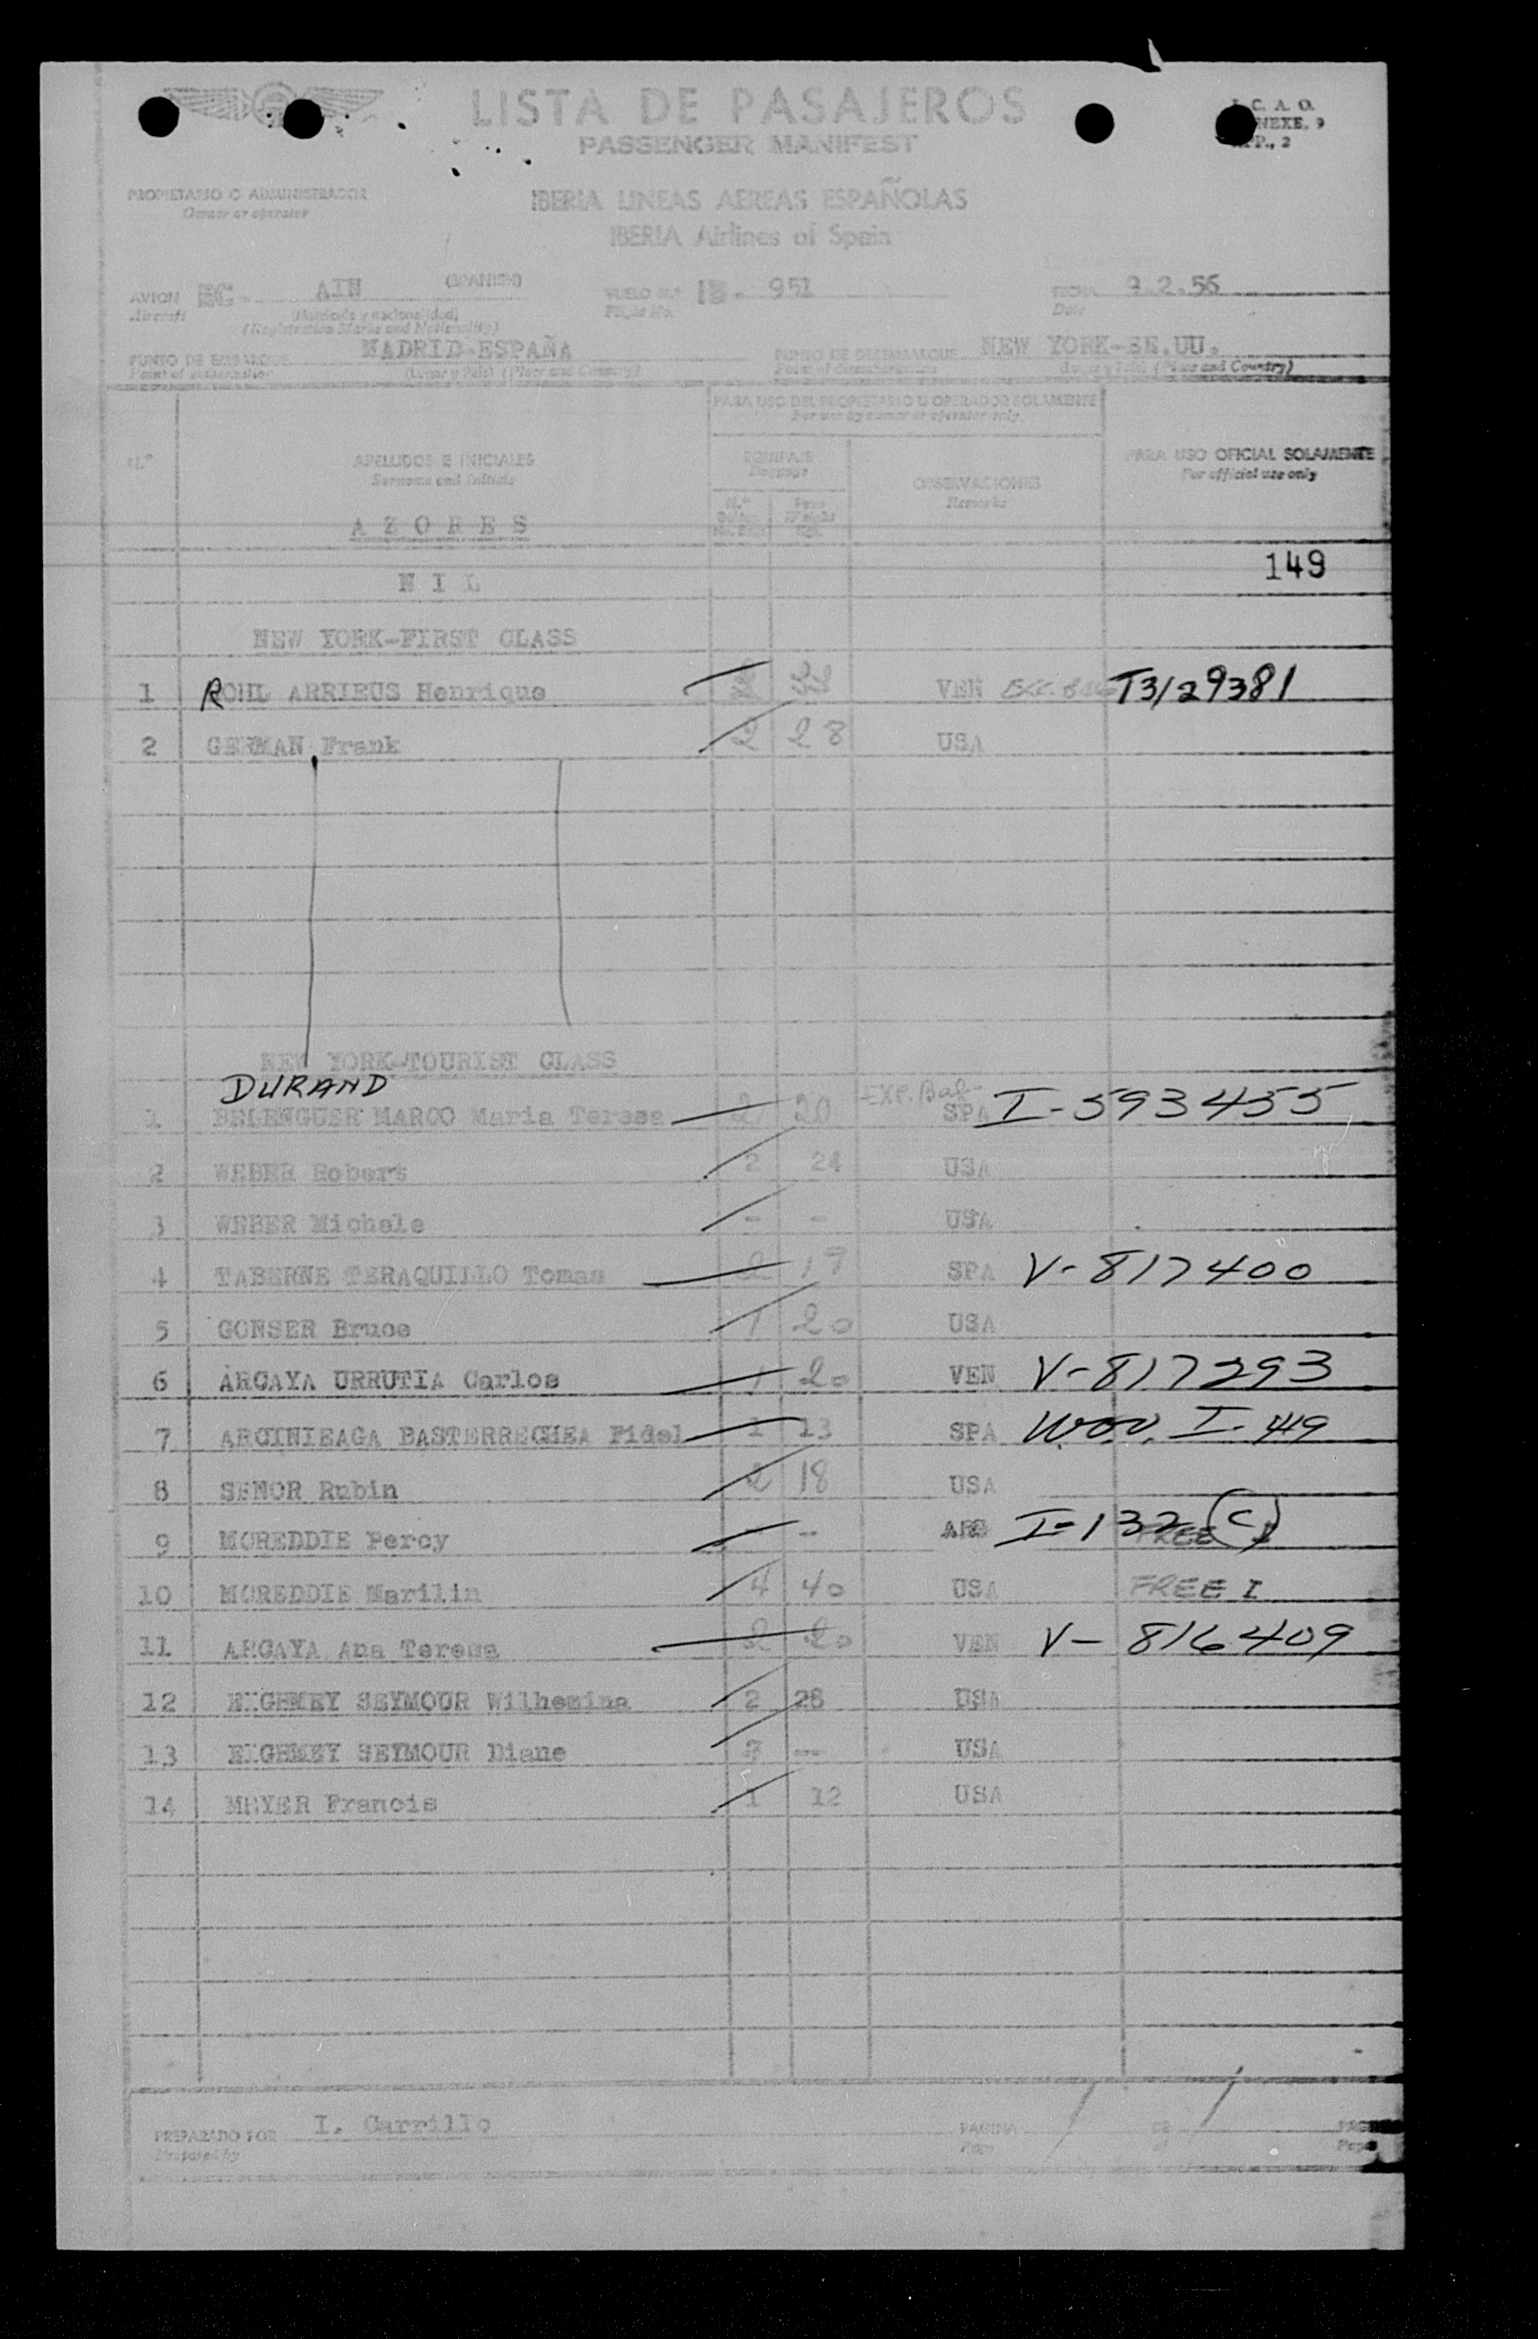 LISTA DE PASAJEROS
PASSENGER MANIFEST
I. C. A. O.
NEXE. 9
PP., 2
PROPIETARIO O ADMINISTRADOR
Owner or operator
IBERIA LINEAS AEREAS ESPAÑOLAS
IBERIA Airlines of Spain
AVION
Aircraft
AIN (SPANISH)
(Matrícula y nacionalidad)
(Registration Marks and Nationality)
VUELO N.º IB - 951
Flight No.
FECHA 9.2.56
Date
PUNTO DE EMBARQUE MADRID-ESPAÑA
Point of embarkation (Lugar y País) (Place and Country)
PUNTO DE DESEMBARQUE NEW YORK-EE.UU.
Point of disembarkation (Lugar y País) (Place and Country)
PARA USO DEL PROPIETARIO U OPERADOR SOLAMENTE
For use by owner or operator only
N.º
APELLIDOS E INICIALES
Surname and Initials
EQUIPAJE
Baggage
N.º
Peso
Weight
OBSERVACIONES
Remarks
PARA USO OFICIAL SOLAMENTE
For official use only
A Z O R E S
N I L
149
NEW YORK-FIRST CLASS
1 ROHL ARRIEUS Henrique VEN T3/29381
2 GERMAN Frank 2 28 USA
NEW YORK-TOURIST CLASS
DURAND
1 BELENGUER MARCO Maria Teresa 2 20 SPA I-593455
2 WEBER Robert 2 24 USA
3 WEBER Michele - - USA
4 TABERNE TERAQUILLO Tomas 2 17 SPA V-817400
5 GONSER Bruce 1 20 USA
6 ARCAYA URRUTIA Carlos 1 20 VEN V-817293
7 ARGINIEAGA BASTERRECHEA Fidel 1 13 SPA W.O.V. I-449
8 SENOR Rubin 2 18 USA
9 MOREDDIE Percy - -- ARG I-132 (C) FREE I
10 MOREDDIE Marilin 4 40 USA FREE I
11 ARCAYA Ana Teresa 2 20 VEN V-816409
12 EIGHMEY SEYMOUR Wilhemina 2 28 USA
13 EIGHMEY SEYMOUR Diane -- USA
14 MEYER Francis 1 12 USA
PREPARADO POR I. Carrillo
Prepared by
PAGINA 1 DE 1
Page of